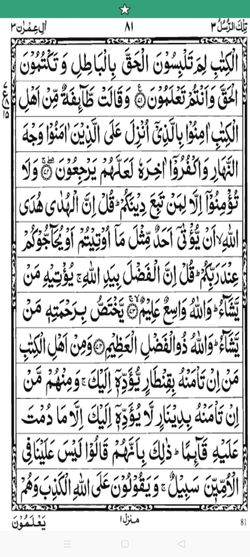 تِلْكَ الرُّسُلُ ٣ ٨١ اٰلِ عِمْرٰن ٣
الْكِتٰبِ لِمَ تَلْبِسُوْنَ الْحَقَّ بِالْبَاطِلِ وَ تَكْتُمُوْنَ
الْحَقَّ وَاَنْتُمْ تَعْلَمُوْنَ وَ قَالَتْ طَّآئِفَةٌ مِّنْ اَهْلِ
الْكِتٰبِ اٰمِنُوْا بِالَّذِيْٓ اُنْزِلَ عَلَى الَّذِيْنَ اٰمَنُوْا وَجْهَ
النَّهَارِ وَاكْفُرُوْٓا اٰخِرَهٗ لَعَلَّهُمْ يَرْجِعُوْنَ وَلَا
تُؤْمِنُوْٓا اِلَّا لِمَنْ تَبِعَ دِيْنَكُمْ قُلْ اِنَّ الْهُدٰى هُدَى
اللّٰهِ اَنْ يُّؤْتٰٓى اَحَدٌ مِّثْلَ مَآ اُوْتِيْتُمْ اَوْ يُحَآجُّوْكُمْ
عِنْدَ رَبِّكُمْ قُلْ اِنَّ الْفَضْلَ بِيَدِ اللّٰهِ يُؤْتِيْهِ مَنْ
يَّشَآءُ وَاللّٰهُ وَاسِعٌ عَلِيْمٌ يَّخْتَصُّ بِرَحْمَتِهٖ مَنْ
يَّشَآءُ وَاللّٰهُ ذُو الْفَضْلِ الْعَظِيْمِ وَمِنْ اَهْلِ الْكِتٰبِ
مَنْ اِنْ تَاْمَنْهُ بِقِنْطَارٍ يُّؤَدِّهٖٓ اِلَيْكَ وَمِنْهُمْ مَّنْ
اِنْ تَاْمَنْهُ بِدِيْنَارٍ لَّا يُؤَدِّهٖٓ اِلَيْكَ اِلَّا مَا دُمْتَ
عَلَيْهِ قَآئِمًا ذٰلِكَ بِاَنَّهُمْ قَالُوْا لَيْسَ عَلَيْنَا فِى
الْاُمِّيّٖنَ سَبِيْلٌ وَيَقُوْلُوْنَ عَلَى اللّٰهِ الْكَذِبَ وَهُمْ
يَعْلَمُوْنَ
منزل ١
81